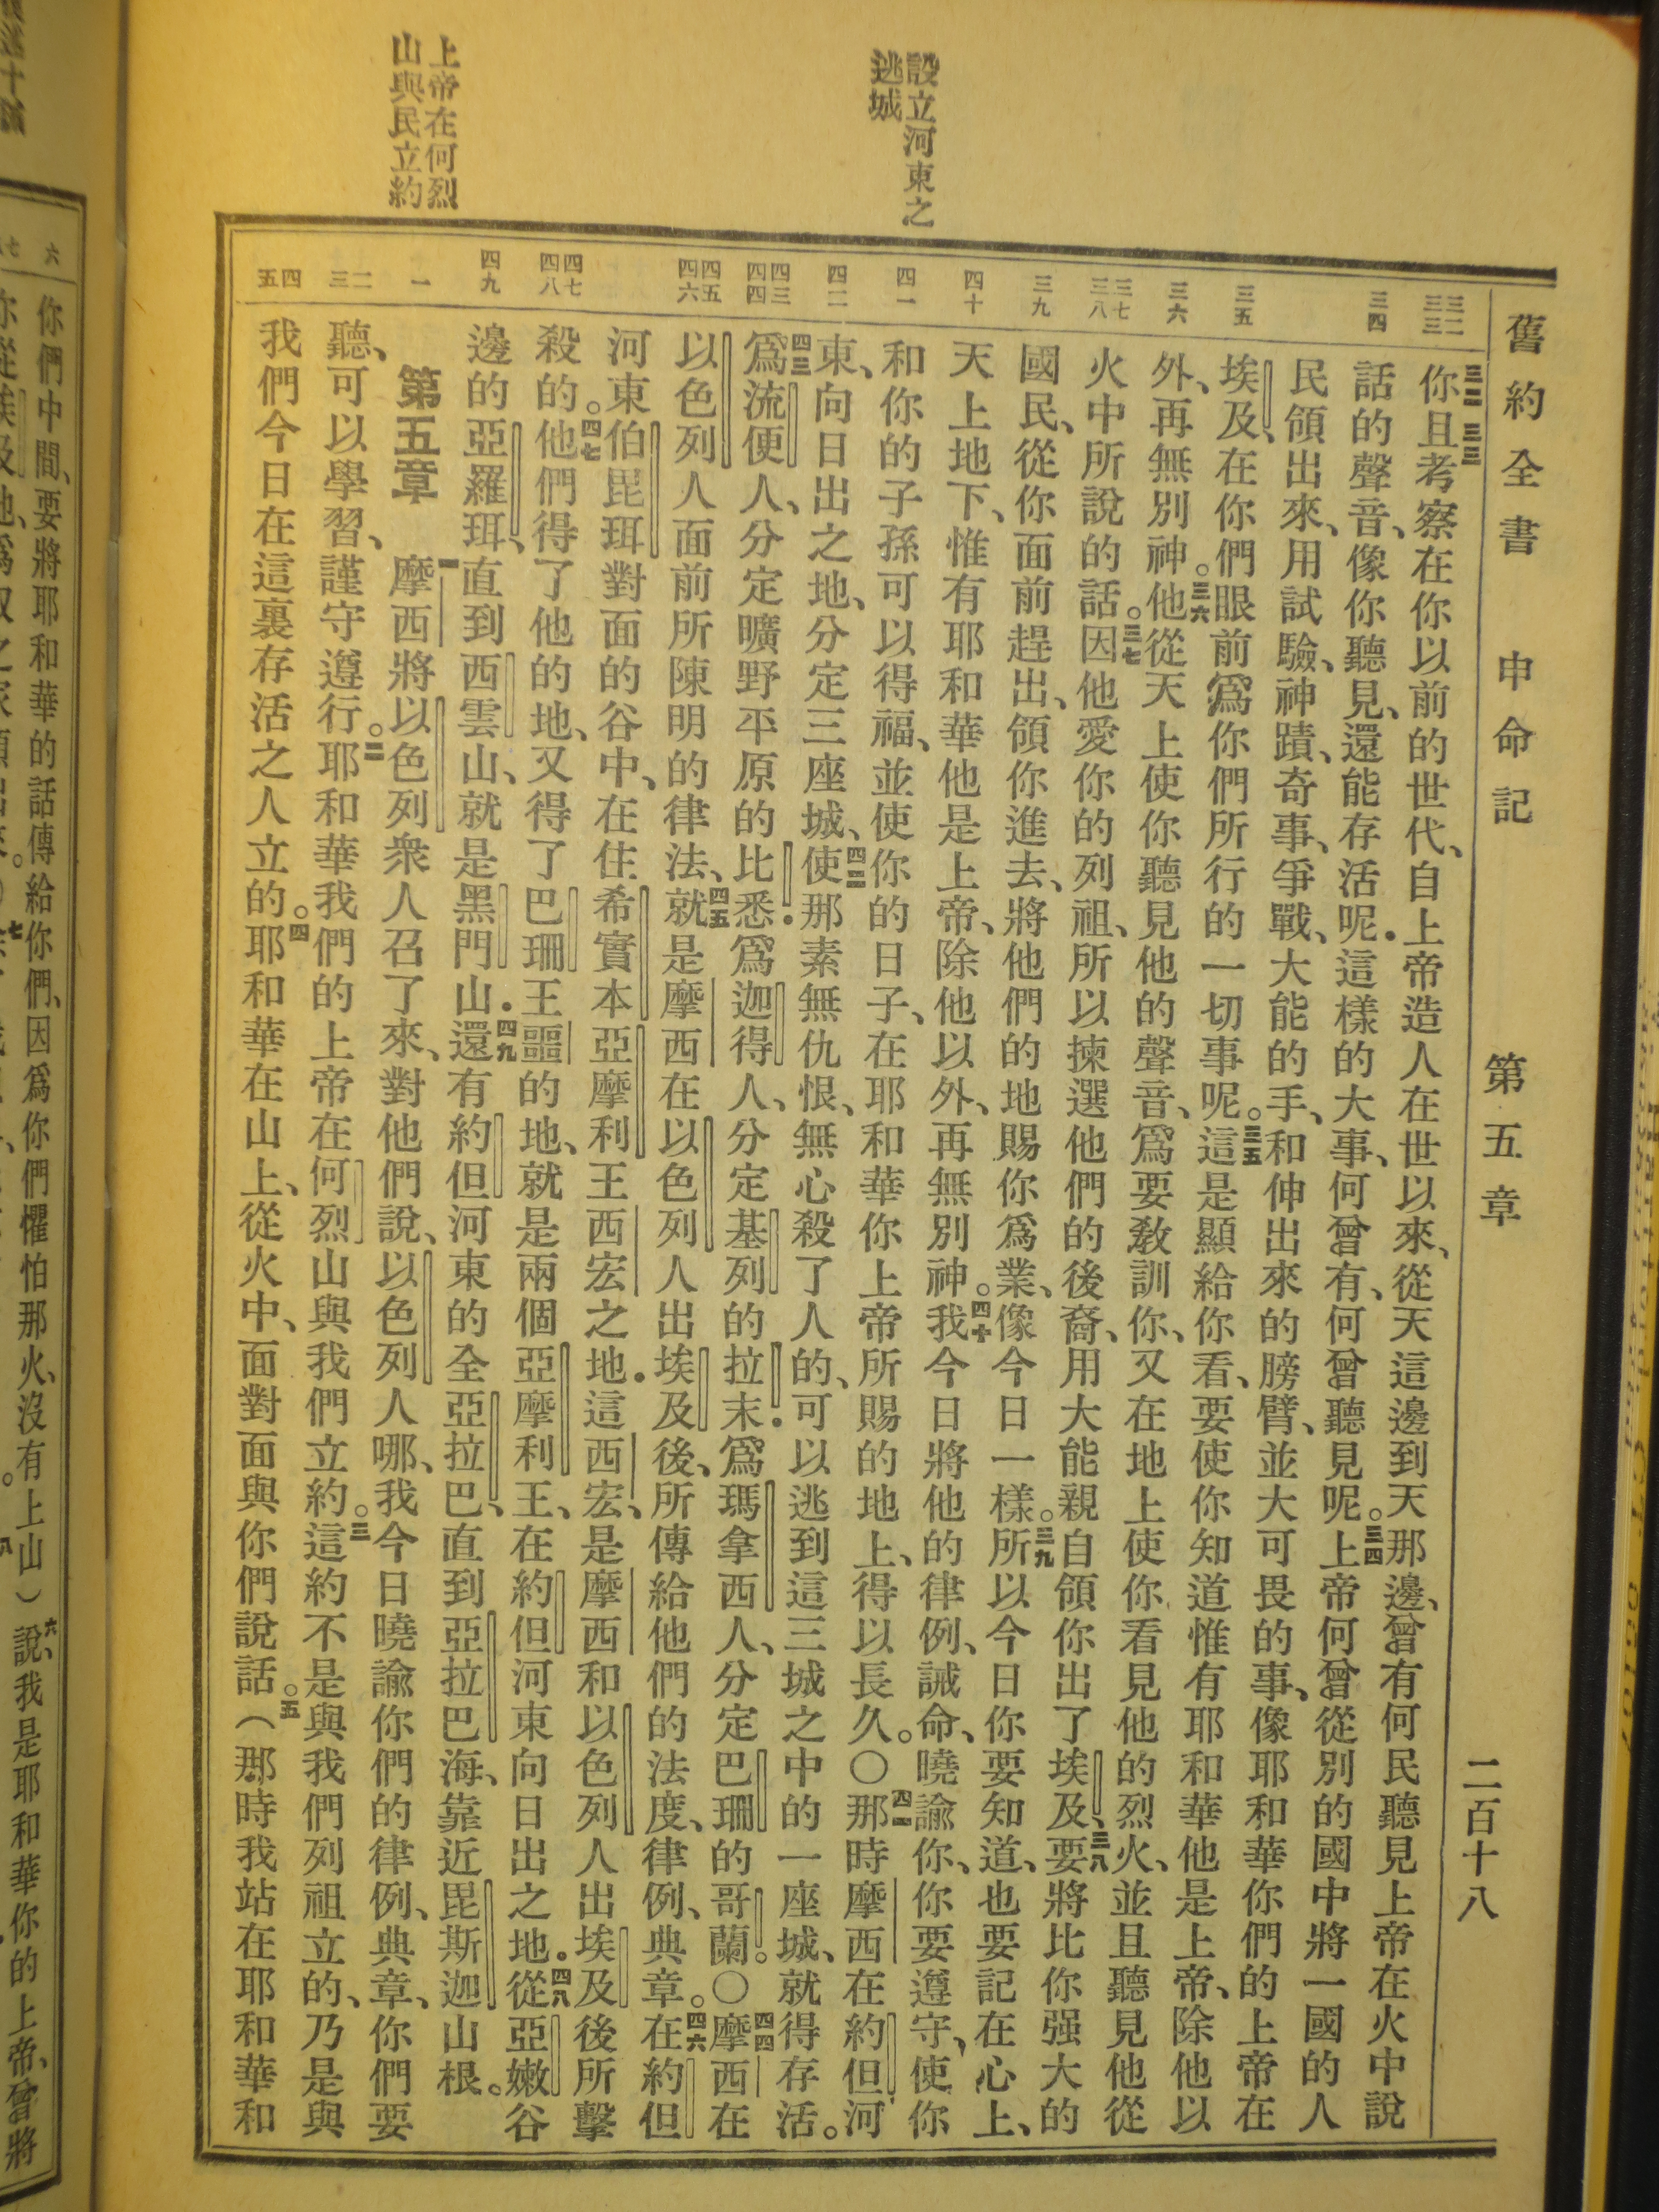 舊約全書 申命記 第五章 二百十八
設立河東之
逃城
上帝在何烈
山與民立約
三二 三三 三四 三五 三六 三七 三八 三九 四十 四一 四二 四三 四四 四五 四六 四七 四八 四九 一 二 三 四 五
三二三三你且考察在你以前的世代、自上帝造人在世以來、從天這邊到天那邊、曾有何民聽見上帝在火中說
話的聲音、像你聽見、還能存活呢．這樣的大事、何曾有、何曾聽見呢。三四上帝何曾從別的國中將一國的人
民領出來、用試驗、神蹟、奇事、爭戰、大能的手、和伸出來的膀臂、並大可畏的事、像耶和華你們的上帝在
埃及、在你們眼前爲你們所行的一切事呢。三五這是顯給你看、要使你知道惟有耶和華他是上帝、除他以
外、再無別神。三六他從天上使你聽見他的聲音、爲要教訓你、又在地上使你看見他的烈火、並且聽見他從
火中所說的話。三七因他愛你的列祖、所以揀選他們的後裔、用大能親自領你出了埃及、三八要將比你强大的
國民、從你面前趕出、領你進去、將他們的地賜你爲業、像今日一樣。三九所以今日你要知道、也要記在心上、
天上地下、惟有耶和華他是上帝、除他以外、再無別神。四十我今日將他的律例、誡命、曉諭你、你要遵守、使你
和你的子孫可以得福、並使你的日子、在耶和華你上帝所賜的地上、得以長久。〇四一那時摩西在約但河
東、向日出之地、分定三座城、四二使那素無仇恨、無心殺了人的、可以逃到這三城之中的一座城、就得存活。
四三爲流便人、分定曠野平原的比悉．爲迦得人、分定基列的拉末．爲瑪拿西人、分定巴珊的哥蘭。〇四四摩西在
以色列人面前所陳明的律法、四五就是摩西在以色列人出埃及後、所傳給他們的法度、律例、典章。四六在約但
河東伯毘珥對面的谷中、在住希實本亞摩利王西宏之地．這西宏、是摩西和以色列人出埃及後所擊
殺的。四七他們得了他的地、又得了巴珊王噩的地、就是兩個亞摩利王、在約但河東向日出之地．四八從亞嫩谷
邊的亞羅珥、直到西雲山、就是黑門山．四九還有約但河東的全亞拉巴、直到亞拉巴海、靠近毘斯迦山根。
第五章 一摩西將以色列衆人召了來、對他們說、以色列人哪、我今日曉諭你們的律例、典章、你們要
聽、可以學習、謹守遵行。二耶和華我們的上帝在何烈山與我們立約。三這約不是與我們列祖立的、乃是與
我們今日在這裏存活之人立的。四耶和華在山上、從火中、面對面與你們說話。五（那時我站在耶和華和
六 七
你們中間、要將耶和華的話傳給你們、因爲你們懼怕那火、沒有上山）說、六我是耶和華你的上帝、曾將